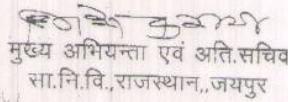 मुख्य अभियन्ता एवं अति.सचिव
सा.नि.वि.,राजस्थान,,जयपुर